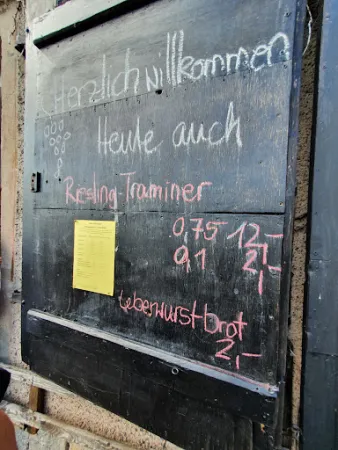 Herzlich willkommen
Heute auch
Riesling-Traminer
0,75 12,-
0,1 2,-
Leberwurstbrot
2,-